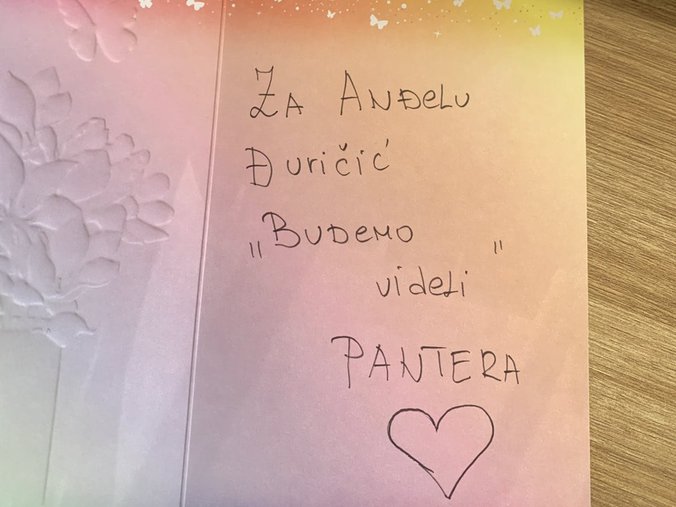 Za Anđelu
Đuričić
„Budemo "
videli
PANTERA